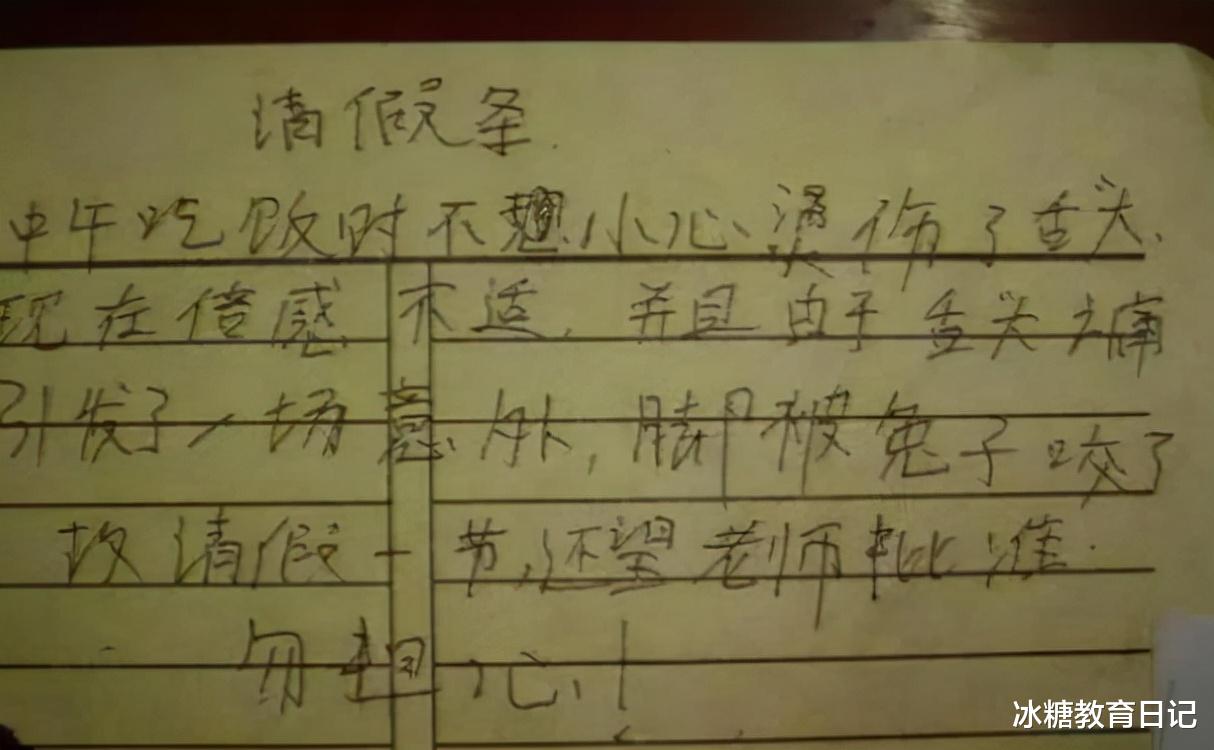 请假条.
中午吃饭时不小心烫伤了舌头、
现在倍感不适，并且由于舌头痛
引发了一场意外，脚被兔子咬了
故请假一节，还望老师批准.
勿担心！
冰糖教育日记